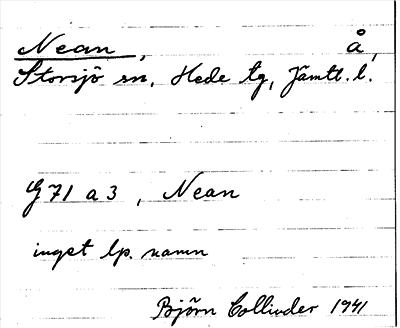 Nean, å,
Storsjö sn, Hede tg, Jämtl. l.
G 71 a 3, Nean
inget lp. namn
Björn Collinder 1941